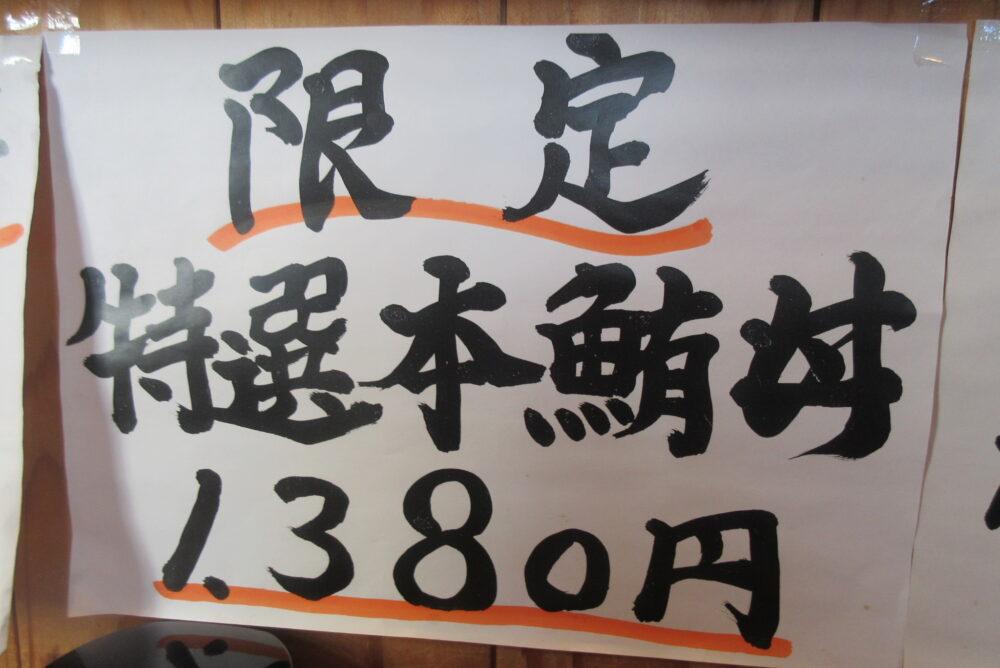 限定
特選本鮪丼
1.380円